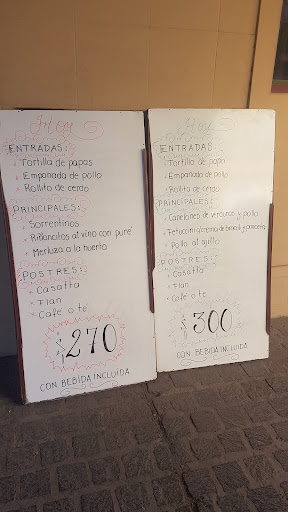 Hoy
ENTRADAS:
Tortilla de papas
Empanada de pollo
Rollito de cerdo
PRINCIPALES:
Sorrentinos
Riñoncitos al vino con puré
Merluza a la huerta
POSTRES:
Casatta
Flan
Café o té
$270
CON BEBIDA INCLUÍDA
Hoy
ENTRADAS:
Tortilla de papa
Empanada de pollo
Rollito de cerdo
PRINCIPALES:
Canelones de verduras y pollo
Fetuccini a/crema de brócoli y panceta
Pollo al grillo
POSTRES:
Casatta
Flan
Café o té
$300
CON BEBIDA INCLUÍDA